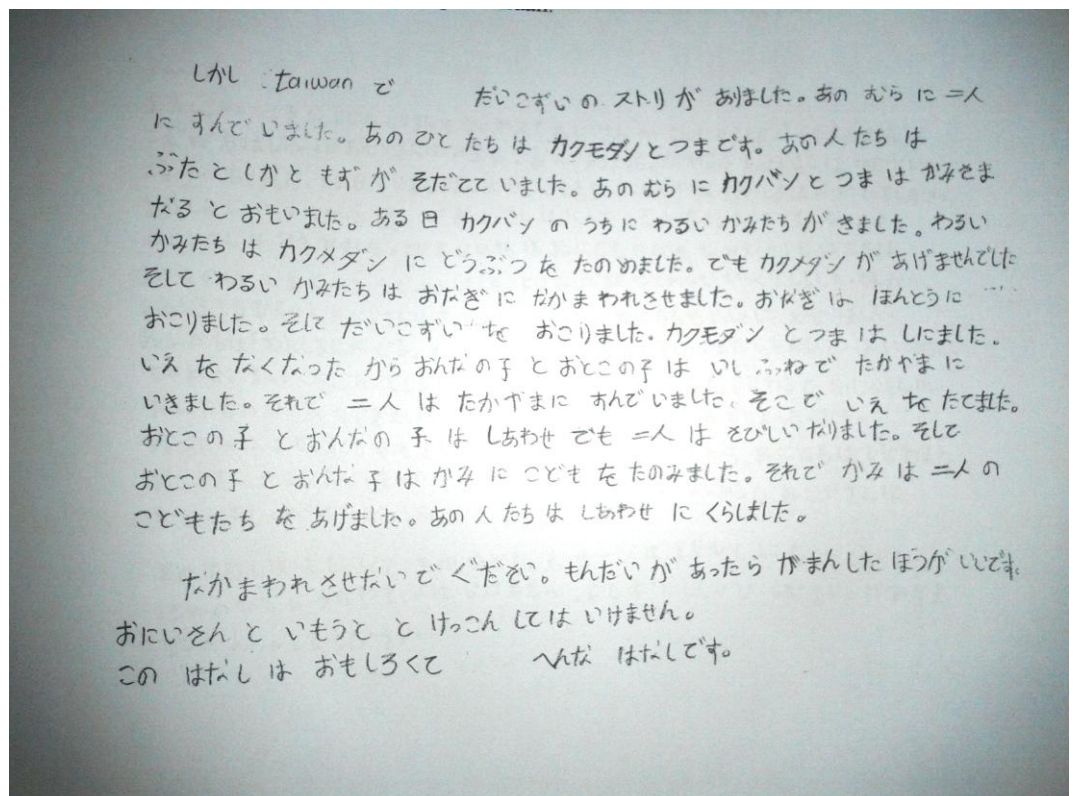 しかし taiwan で だいこずい の ストリ が ありました。あの むら に 二人
に すんで いました。あの ひと たち は カクモダン と つま です。あの 人 たち は
ぶた と しか と もず が そだてて いました。あの むら に カクバン と つま は かみさま
なる と おもいました。ある 日 カクバン の うち に わるい かみたち が きました。わるい
かみたち は カクメダン に どうぶつ を たのめました。でも カクメダン が あげませんでした
そして わるい かみたち は おなぎ に なかま われ させました。おなぎ は ほんとうに
おこりました。そして だいこずい を おこりました。カクモダン と つま は しにました。
いえ を なくなった から おんなの子 と おとこの子 は いし ふね で たかやま に
いきました。それで 二人 は たかやま に すんで いました、そこで いえ を たてました。
おとこの 子 と おんなの 子 は しあわせ でも 二人 は さびしい なりました。そして
おとこの 子 と おんな 子 は かみ に こども を たのみました。それで かみ は 二人 の
こどもたち を あげました。あの 人 たち は しあわせ に くらしました。
なかま われ させないで ぐださい。もんだい が あったら がまんした ほうが いいです。
おにいさん と いもうと と けっこん しては いけません。
この はなし は おもしろくて へんな はなし です。